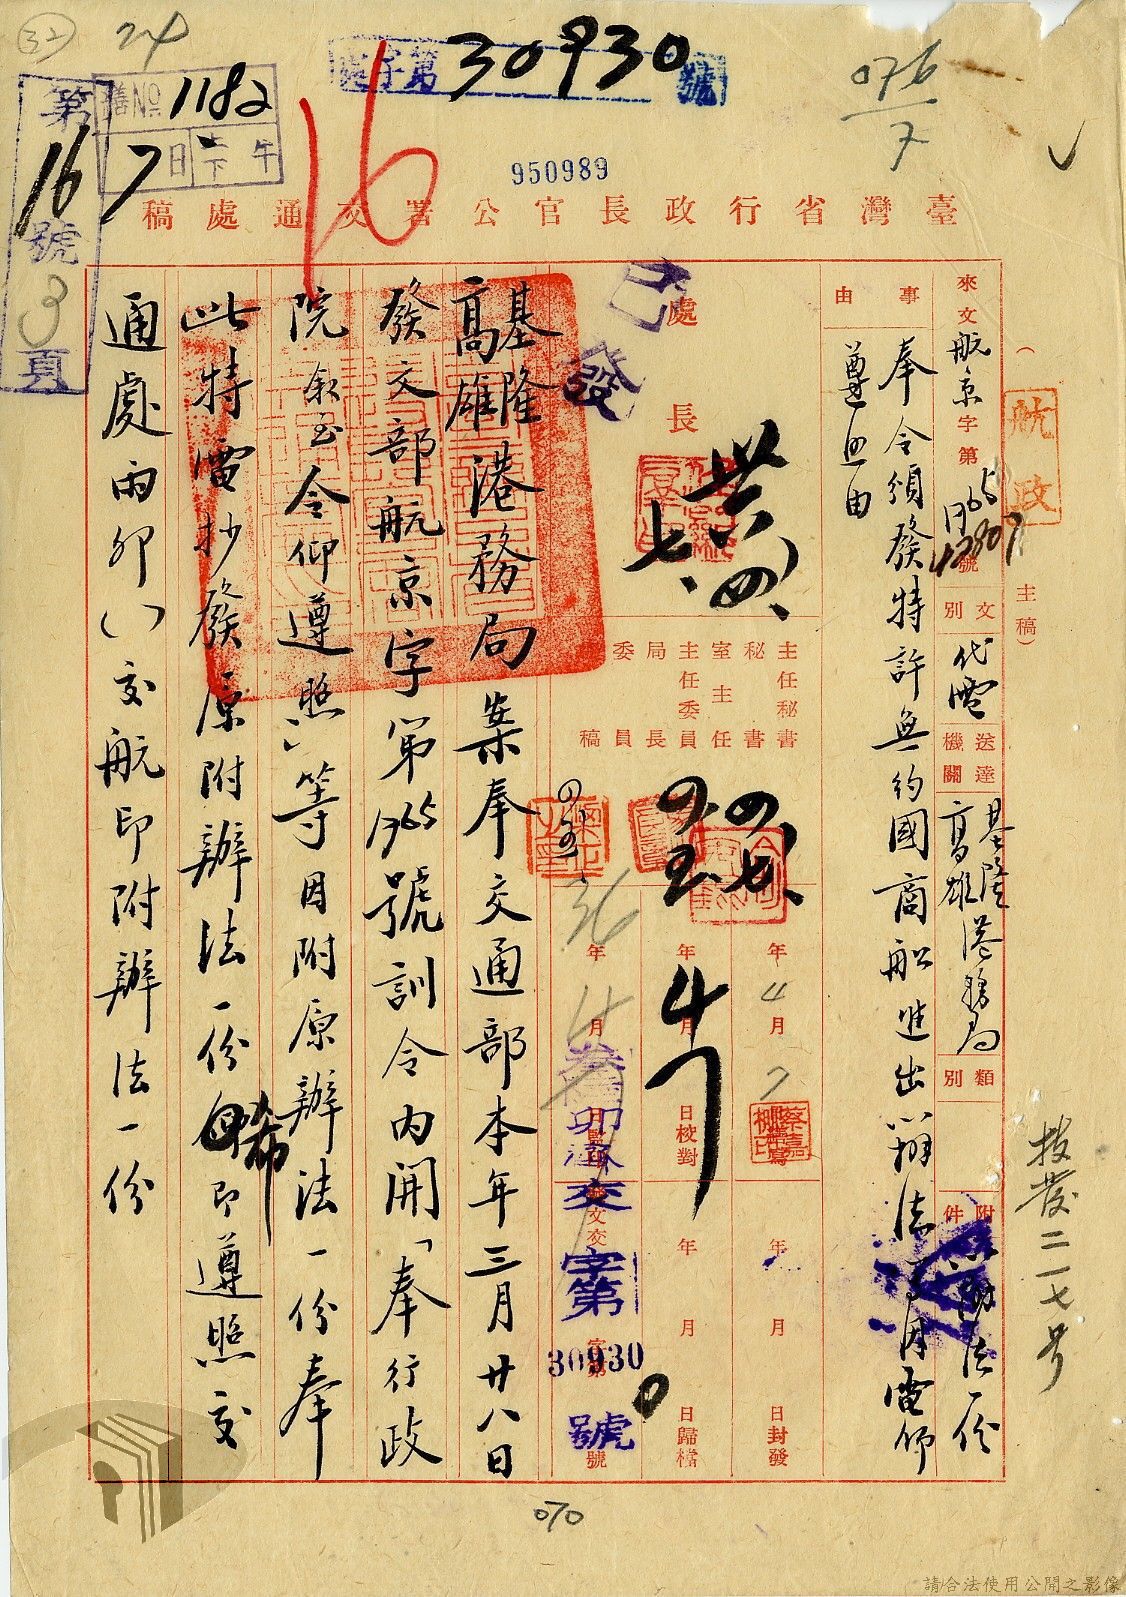 32
24
處字第30930號
076
7
第16號3頁
繕No 1182
7日上下午
16
950989
臺灣省行政長官公署交通處稿
航政
(主稿)
來文航京字第1965號
42807
文別 代電
送達機關 基隆高雄港務局
類別
附件 辦法一份
事由
奉令頒發特許無約國商船進出口辦法一份電仰
遵照由
處長
已發
世
四、
七、
主任秘書
秘書
室主任
主任委員
局長
委員
稿
年4月7日
蔡嘉
年月日封發
年月日校對
年月日歸檔
36年4月
卯
交字第30930號
基隆高雄港務局案奉交通部本年三月廿八日
發文部航京字第1965號訓令內開「奉行政
院叙至令仰遵照」等因附原辦法一份奉
此特電抄發原附辦法一份希即遵照交
通處雨卯( )交航印附辦法一份
技發二一七号
070
請合法使用公開之影像